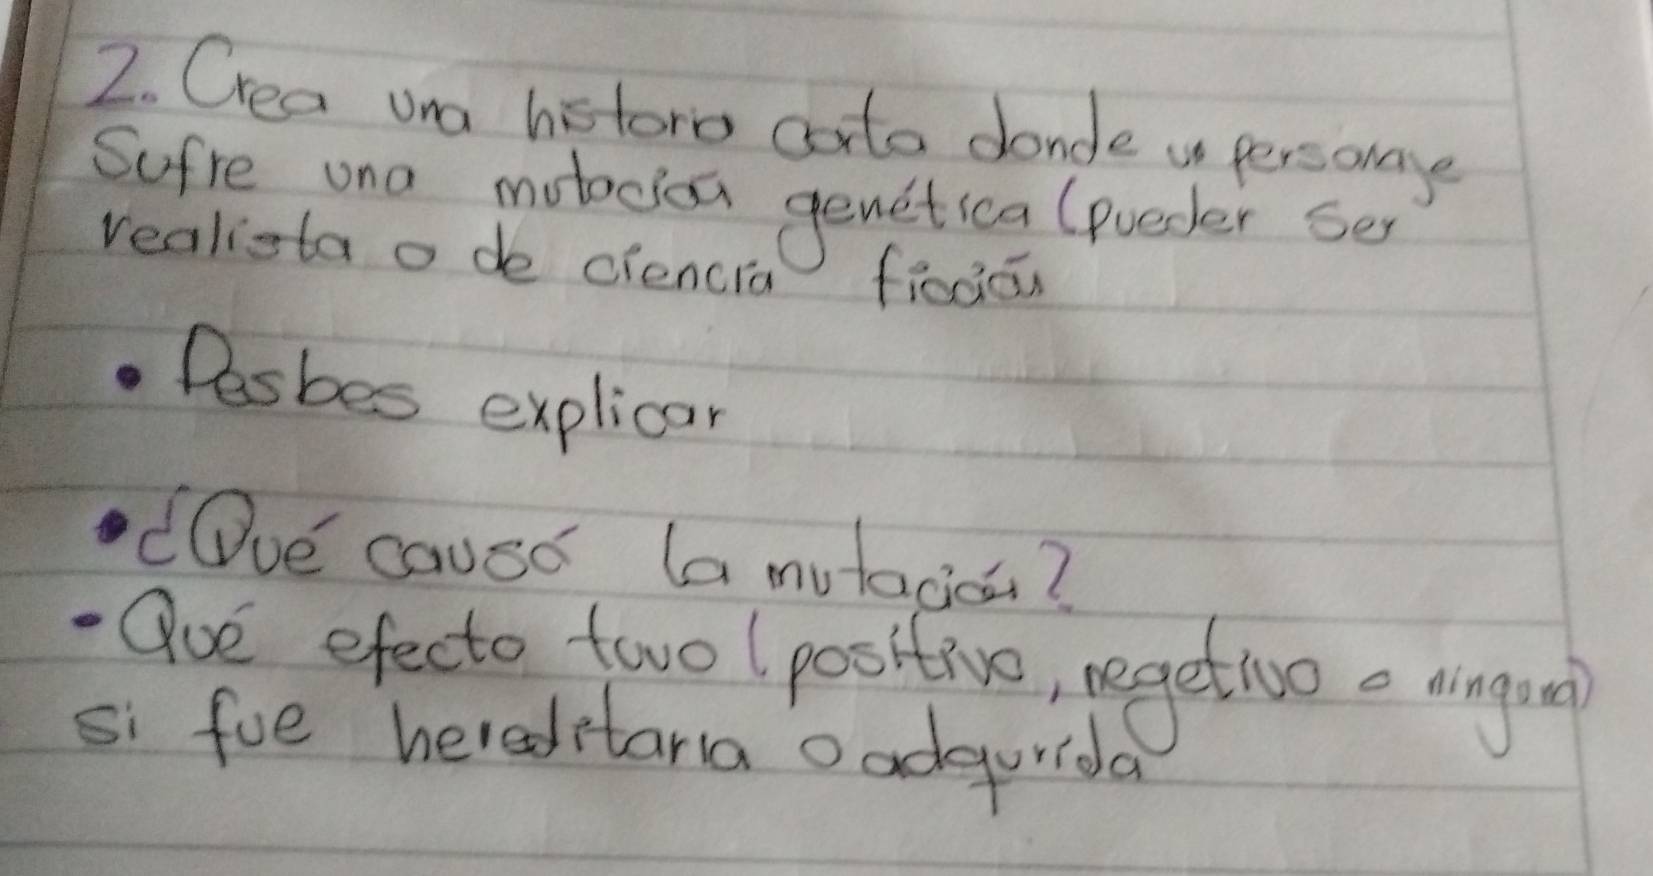 2. Crea una historia corta donde un personaje
Sufre una mutación genética (pueder ser
realista o de ciencia ficción
• Desbes explicar
• ¿Qué causó la mutación?
• Qué efecto tuvo (positivo, negetivo o ninguno)
si fue hereditaria o adqurida